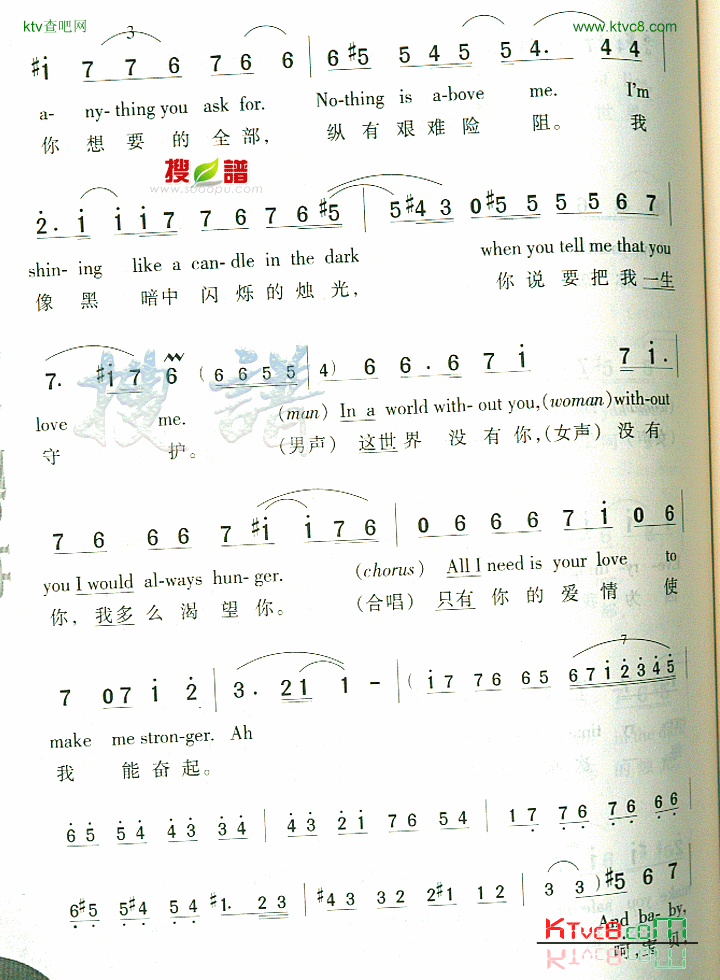 ktv查吧网
www.ktvc8.com
3
#i 7 7 6 7 6 6 | 6 #5 5 4 5 5 5 4. 4 4
a- ny- thing you ask for. No-thing is a-bove me. I'm
你 想 要 的 全 部, 纵 有 艰 难 险 阻。 我
搜 譜
www.sooopu.com
2. i i i 7 7 6 7 6 #5 | 5 #4 3 0 #5 5 5 5 6 7
shin- ing like a can- dle in the dark when you tell me that you
像 黑 暗中 闪 烁 的 烛 光, 你 说 要 把 我 一生
7. #i 7 6 ( 6 6 5 5 | 4) 6 6. 6 7 i 7 i.
搜 譜
love me. (man) In a world with- out you, (woman) with-out
守 护。 (男声) 这世 界 没 有 你, (女声) 没 有
7 6 6 6 7 #i i 7 6 | 0 6 6 6 7 i 0 6
you I would al-ways hun- ger. (chorus) All I need is your love to
你, 我多 么 渴 望 你。 (合唱) 只有 你 的 爱 情 使
7
7 0 7 i 2 | 3. 2 i i - | ( i 7 7 6 6 5 6 7 i 2 3 4 5
make me stron-ger. Ah
我 能 奋 起。
6 5 5 4 4 3 3 4 | 4 3 2 i 7 6 5 4 | 1 7 7 6 7 6 6 6
6 #5 5 #4 5 4 #1. 2 3 | #4 3 3 2 2 #1 1 2 | 3 3 ) #5 6 7
And ba- by,
啊, 宝 贝,
KTvc8.com